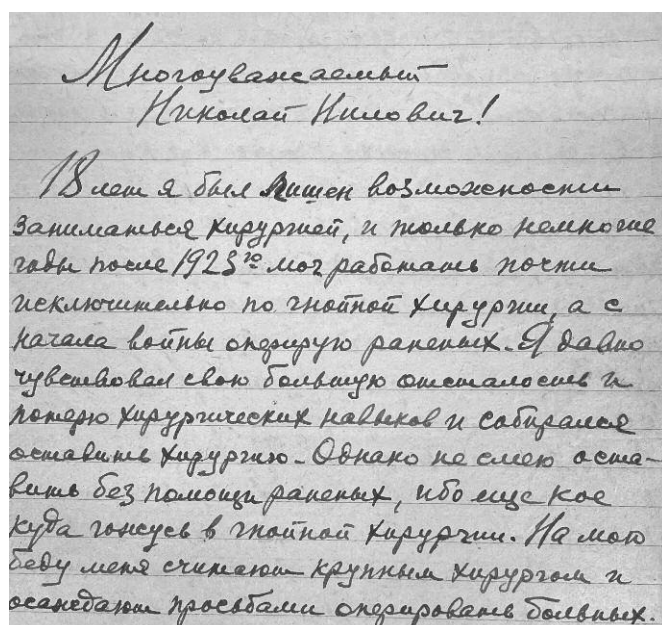 Многоуважаемый
Николай Нилович!
18 лет я был лишен возможности
заниматься хирургией, и только немногие
годы после 1923го мог работать почти
исключительно по гнойной хирургии, а с
начала войны оперирую раненых. Я давно
чувствовал свою большую отсталость и
потерю хирургических навыков и собирался
оставить хирургию. Однако не смею оста-
вить без помощи раненых, ибо еще кое
куда гожусь в гнойной хирургии. На мою
беду меня считают крупным хирургом и
осаждают просьбами оперировать больных.